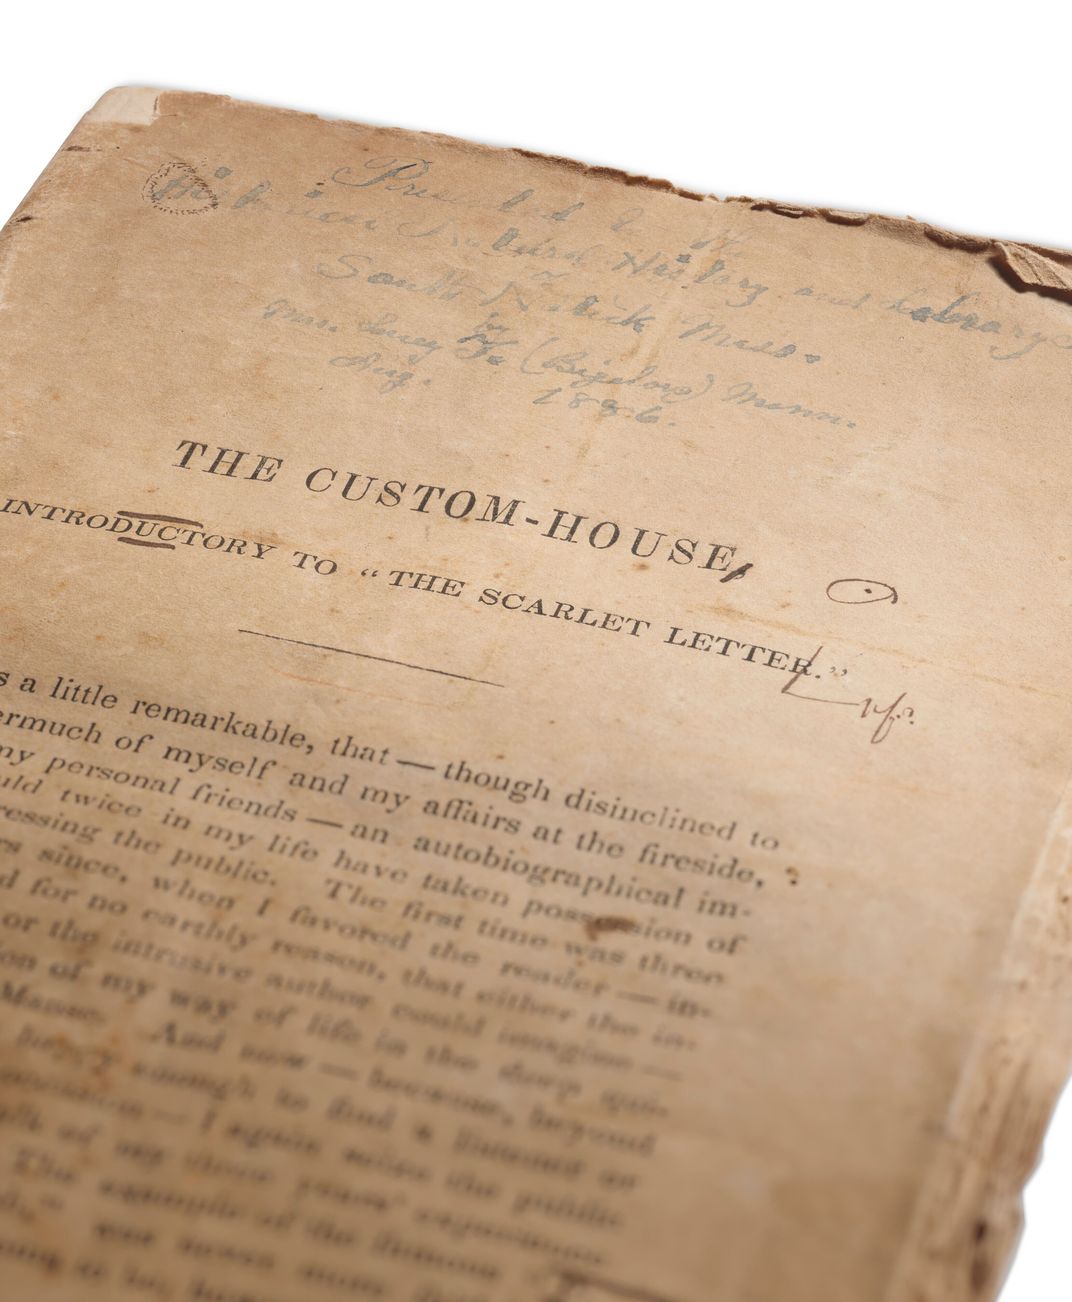 Presented to the
Historical Natural History and Library
of
South Natick Mass.
by
Mrs. Lucy F. (Bigelow) Mann.
Aug. 1886.
THE CUSTOM-HOUSE,
INTRODUCTORY TO "THE SCARLET LETTER."
s a little remarkable, that — though disinclined to
ermuch of myself and my affairs at the fireside,
my personal friends — an autobiographical im-
uld twice in my life have taken possession of
ressing the public. The first time was three
rs since, when I favored the reader — in-
d for no earthly reason, that either the in-
or the intrusive author could imagine —
on of my way of life in the deep qui-
Manse. And now — because, beyond
happy enough to find a listener or
occasion — I again seize the public
The example of the famous
was never more